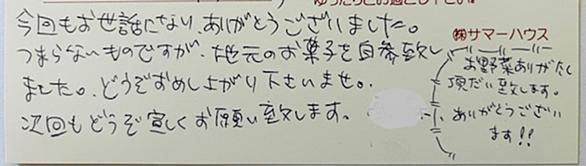 今回もお世話になり、ありがとうございました。
つまらないものですが、地元のお菓子を自参致し
ました。どうぞおめし上がり下さいませ。
次回もどうぞ宜しくお願い致します。
㈱サマーハウス
お野菜ありがたく
頂だい致します。
ありがとうござい
ます!!